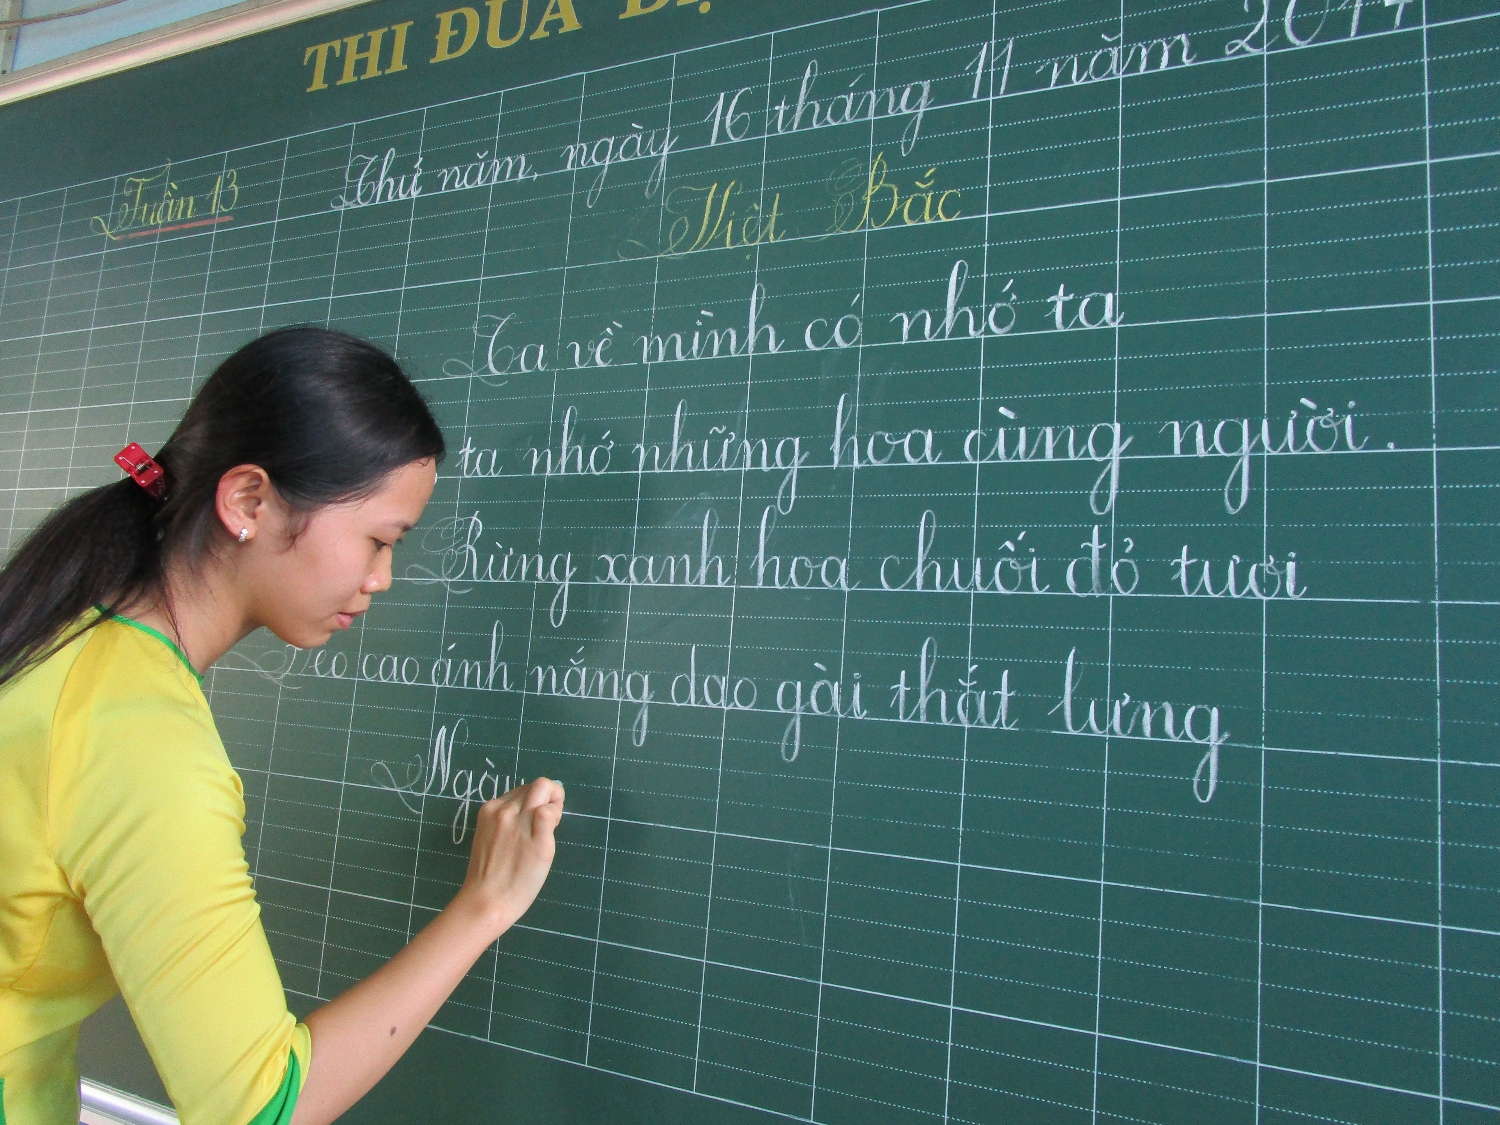 THI ĐUA
Tuần 13
Thứ năm, ngày 16 tháng 11 năm 2017
Việt Bắc
Ta về mình có nhớ ta
ta nhớ những hoa cùng người.
Rừng xanh hoa chuối đỏ tươi
Đèo cao ánh nắng dao gài thắt lưng
Ngày